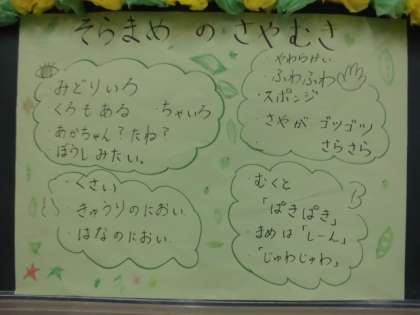 そらまめ の さやむき
みどりいろ
くろもある ・ちゃいろ
あかちゃん？たね？
ぼうしみたい。
・やわらかい
・ふわふわ
・スポンジ
・さやが ゴツゴツ
さらさら
・くさい
・きゅうりのにおい
・はなのにおい
・むくと
「ぱきぱき」
まめは「しーん」
「じゅわじゅわ」